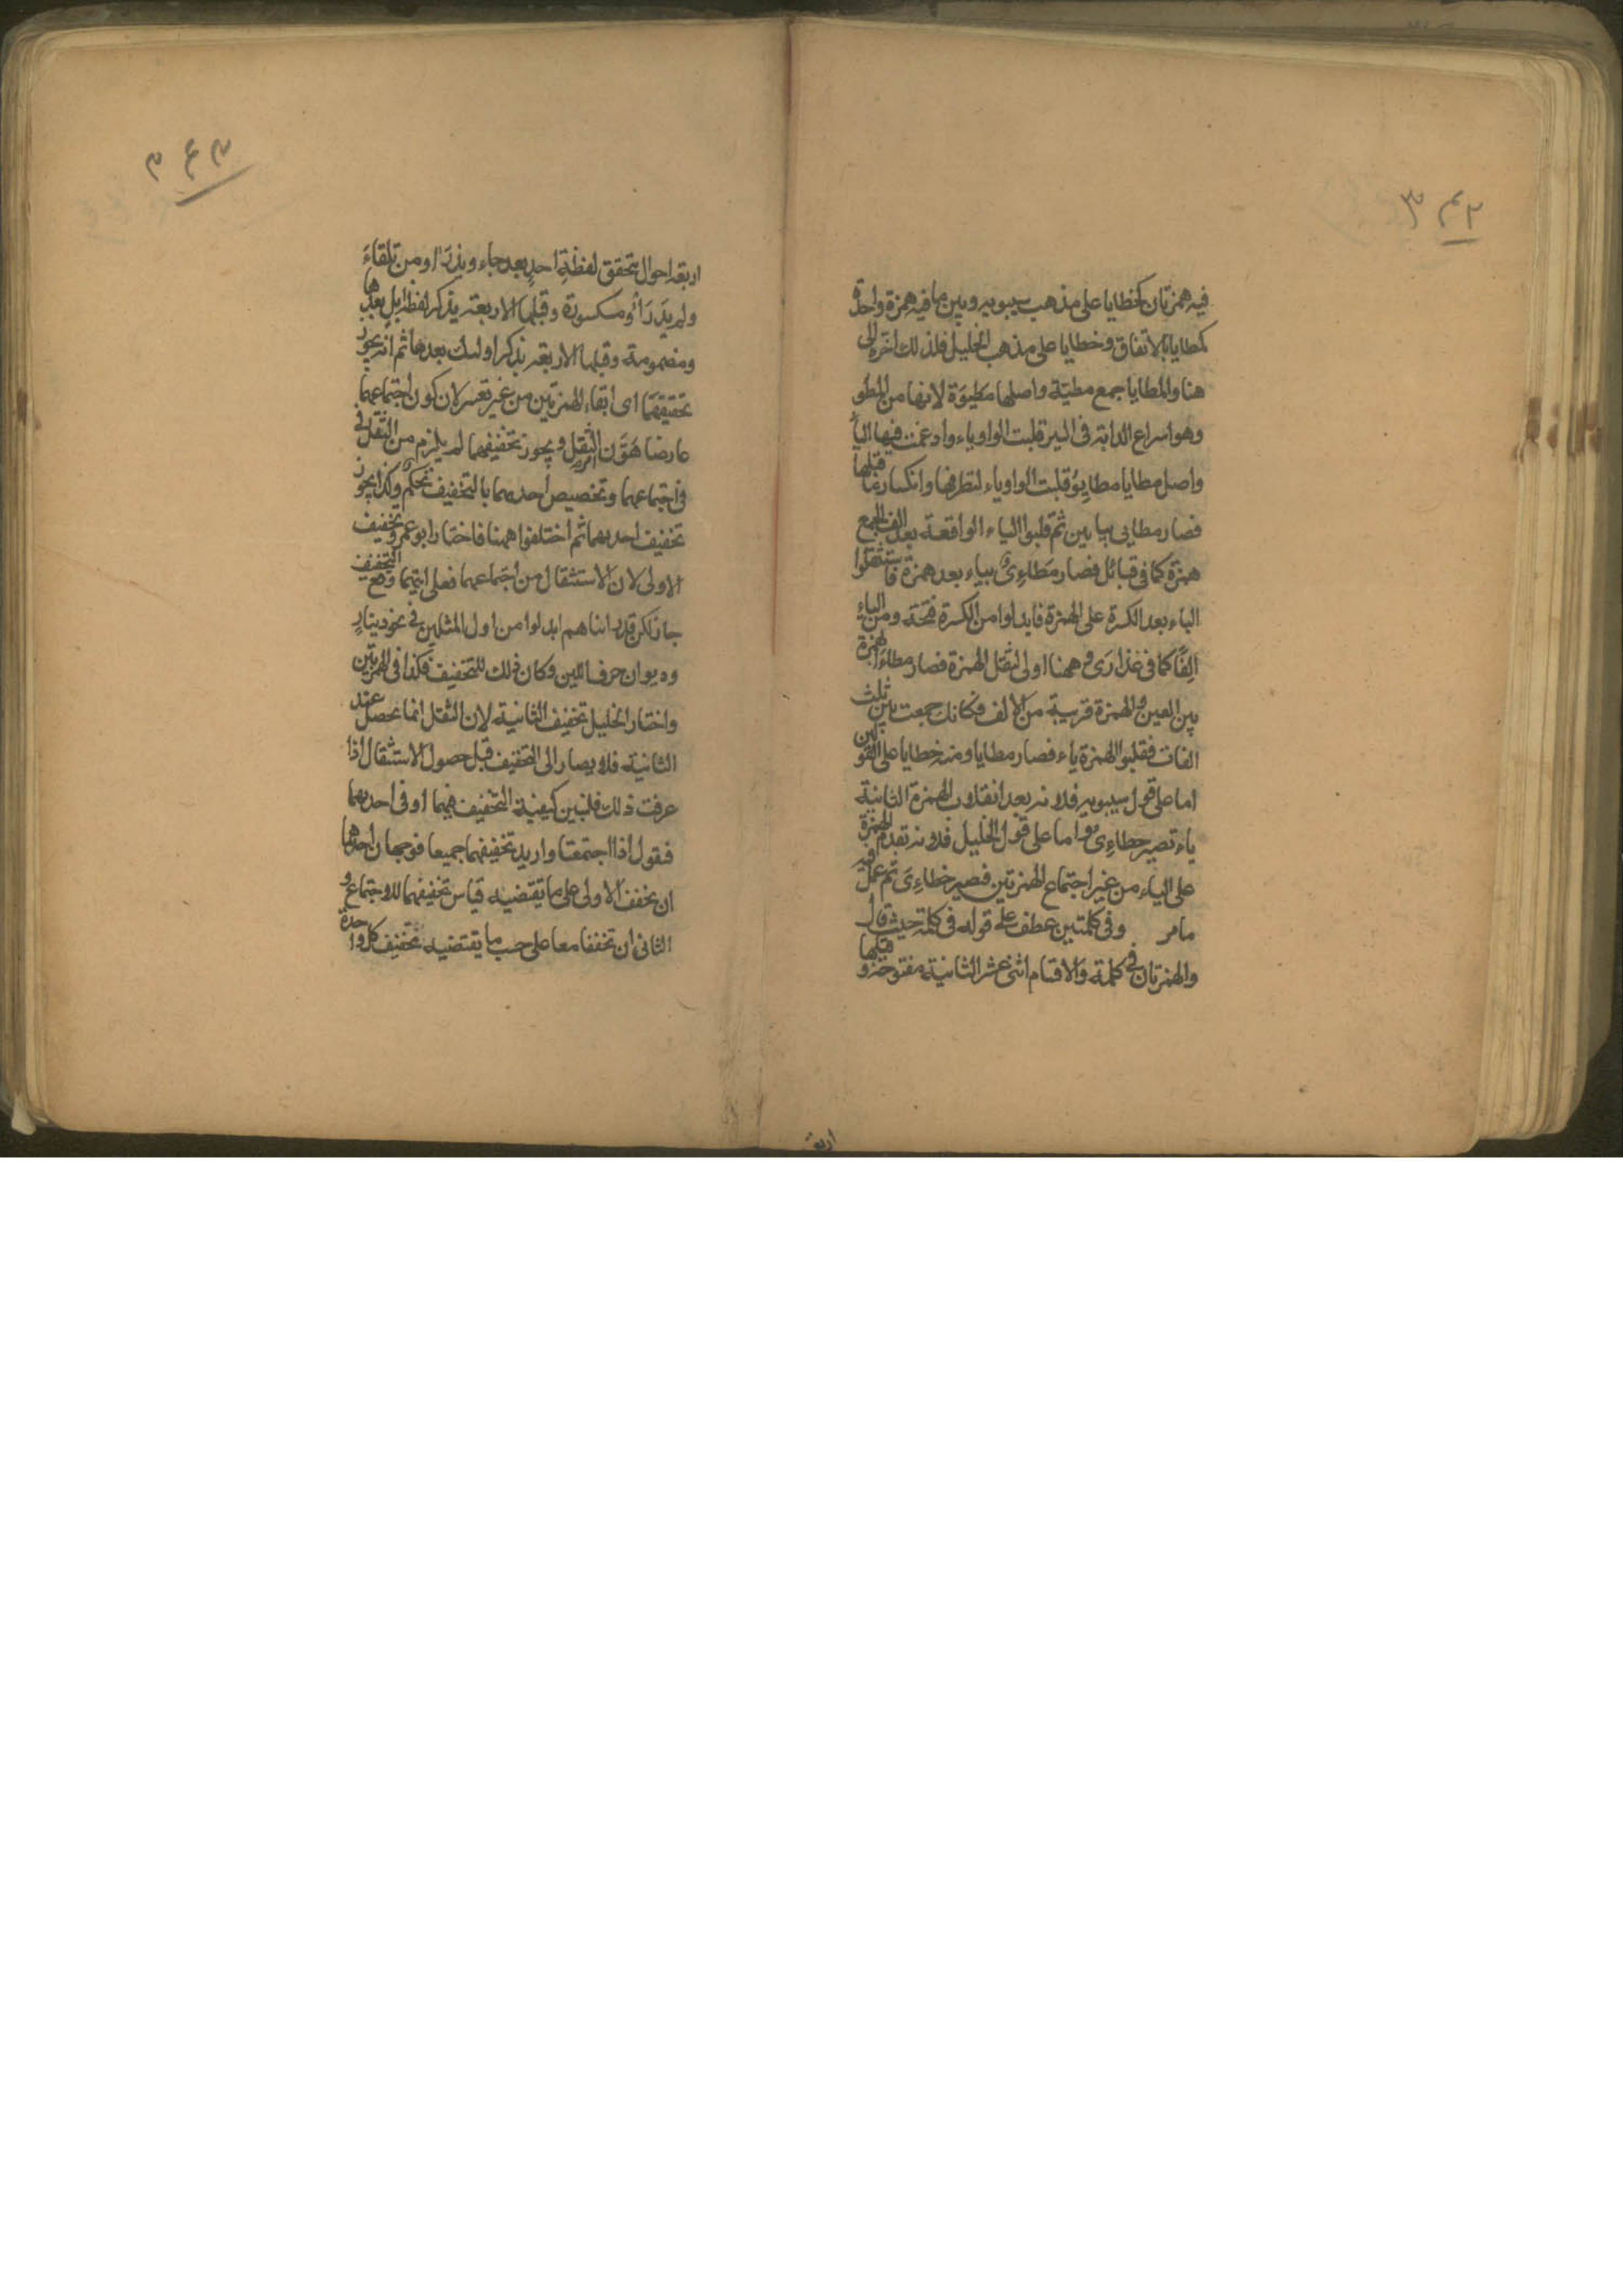 فيه همزتان كخطايا على مذهب سيبويه وبين ما فيه همزة واحدة
كمطايا بالاتفاق وخطايا على مذهب الخليل فلذلك اخره الى
هنا والمطايا جمع مطيّة واصلها مَطِيوَة لانها من المطو
وهو اسراع الدابة فى السير قلبت الواو ياء وادغمت فيها الياء
واصل مطايا مطايِوُ قلبت الواو ياء لتطرفها وانكسار ما قبلها
فصار مطايى بيائين ثم قلبوا الياء الواقعة بعد الف الجمع
همزة كما فى قبائل فصار مَطاءِىُ بياء بعد همزة فاستثقلوا
الياء بعد الكسرة على الهمزة فابدلوا من الكسرة فتحة ومن الياء
الفًا كما فى عذارَى وههنا اولى لثقل الهمزة فصار مطاءَا بهمزة
بين الفين والهمزة قريبة من الالف فكانك جمعت بين ثلث
الفات فقلبوا الهمزة ياء فصار مطايا ومنه خطايا على القولين
اما على قول سيبويه فلانه بعد انقلاب الهمزة الثانية
ياء تصير خطاءِىُ واما على قول الخليل فلانه تقدم الهمزة
على الياء من غير اجتماع الهمزتين فصير خطاءِىَ ثم عمل فيه
ما مر وفى كلمتين عطف على قوله فى كلمة حيث قال
والهمزتان فى كلمة والاقسام اثنى عشر الثانية مفتوحة وقبلها
اربعة
اربعة احوال بتحقق لفظةِ احدٍ بعد جاء ويَدْرَأ ومن تلقاءَ
ولم يَدْرَأْ ومكسورة وقبلها الاربعة بذكر لفظ ابل بعدها
ومضمومة وقبلها الاربعة بذكر اولئك بعدها ثم انه يجوز
تحقيقهما اى ابقاء الهمزتين من غير تغيير لان كون اجتماعهما
عارضا هَوَّن الثقل ويجوز تخفيفهما لم يلزم من الثقل فى
فى اجتماعهما وتخصيص احدهما بالتخفيف تحكّم وكذا يجوز
تخفيف احديهما ثم اختلفوا ههنا فاختار ابو عمرو تخفيف
الاولى لان الاستثقال من اجتماعهما فعلى ايتهما وقع التخفيف
جاز لكن قد راىناهم ابدلوا من اول المثلين فى نحو دينارٍ
وديوان حرف اللين وكان ذلك للتخفيف فكذا فى الهمزتين
واختار الخليل تخفيف الثانية لان الثقل انما يحصل عند
الثانية فلا يصار الى التخفيف قبل حصول الاستثقال اذا
عرفت ذلك فلنبين كيفية التخفيف فيهما او فى احديهما
فنقول اذا اجتمعتا واريد تخفيفهما جميعا فوجهان احدهما
ان يخفف الاولى على ما تقتضيه قياس تخفيفهما للاجتماع و
الثانى ان تخففا معا على حسب ما يقتضيه تخفيف كل واحدة